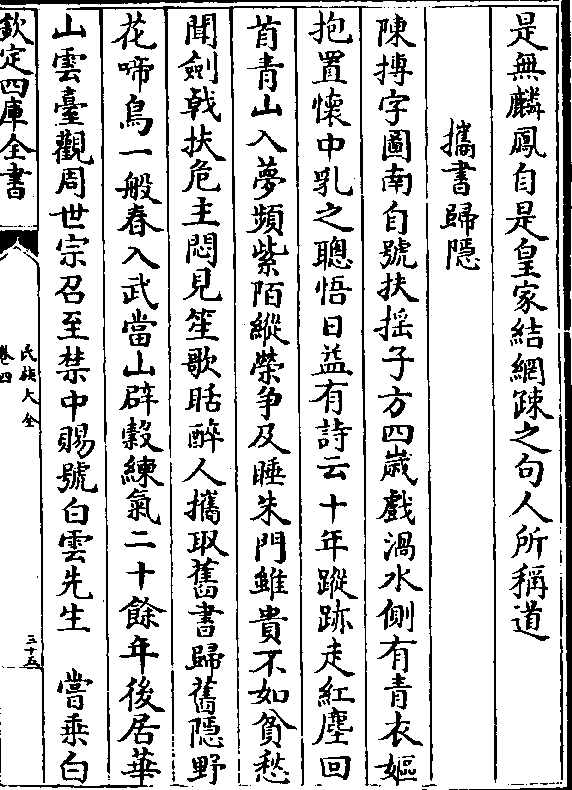 是無麟鳳自是皇家結網踈之句人所稱道
攜書歸隱
陳摶字圖南自號扶搖子方四歲戲渦水側有青衣嫗
抱置懷中乳之聰悟日益有詩云十年蹤跡走紅塵回
首青山入夢頻紫陌縱榮争及睡朱門雖貴不如貧愁
聞劍戟扶危主悶見笙歌聒醉人攜取舊書歸舊隱野
花啼鳥一般春入武當山辟穀練氣二十餘年後居華
山雲臺觀周世宗召至禁中賜號白雲先生　嘗乗白
欽定四庫全書
氏族大全
卷四
三十五